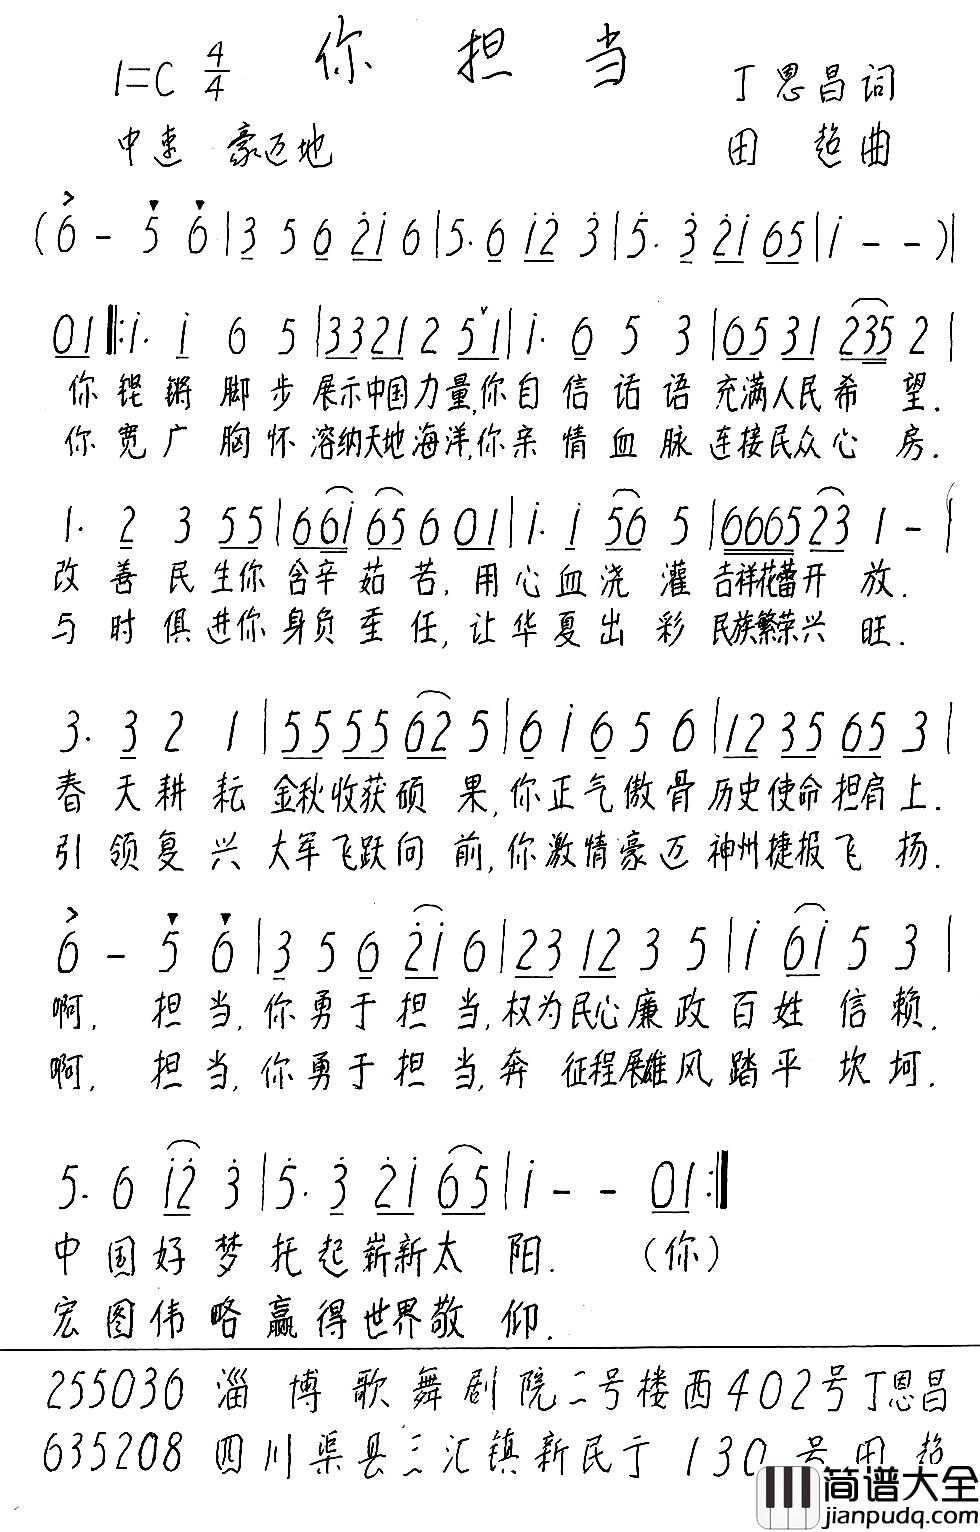 你 担 当
1=C 4/4
丁恩昌词
中速 豪迈地
田 超曲
(6 - 5 6 | 3 5 6 2 1 6 | 5. 6 1 2 3 | 5. 3 2 1 6 5 | 1 - - ) |
0 1 ‖: 1. 1 6 5 | 3 3 2 1 2 5 1 | 1. 6 5 3 | 6 5 3 1 2 3 5 2 |
你 铿 锵 脚 步 展示中国力量,你自信话语 充满人民希 望.
你 宽 广 胸 怀 溶纳天地海洋,你亲情血脉 连接民众心 房.
1. 2 3 5 5 | 6 6 1 6 5 6 0 1 | 1. 1 5 6 5 | 6 6 6 5 2 3 1 - |
改 善 民 生你 含辛茹苦,用心血浇 灌 吉祥花蕾开 放.
与 时 俱 进你 身负重任,让华夏出 彩 民族繁荣兴 旺.
3. 3 2 1 | 5 5 5 5 6 2 5 | 6 1 6 5 6 | 1 2 3 5 6 5 3 |
春 天 耕 耘 金秋收获硕 果,你正气傲骨 历史使命担肩上.
引 领 复 兴 大军飞跃向 前,你激情豪迈 神州捷报飞 扬.
6 - 5 6 | 3 5 6 2 1 6 | 2 3 1 2 3 5 | 1 6 1 5 3 |
啊, 担 当,你勇于担 当,权为民心廉政百姓信 赖.
啊, 担 当,你勇于担 当,奔 征程展雄风踏平坎坷.
5. 6 1 2 3 | 5. 3 2 1 6 5 | 1 - - 0 1 :‖
中国好 梦 托起崭新太 阳. (你)
宏图伟 略 赢得世界敬 仰.
255036 淄博歌舞剧院二号楼西402号丁恩昌
635208 四川渠县三汇镇新民于130号田超
简谱大全
jianpudq.com